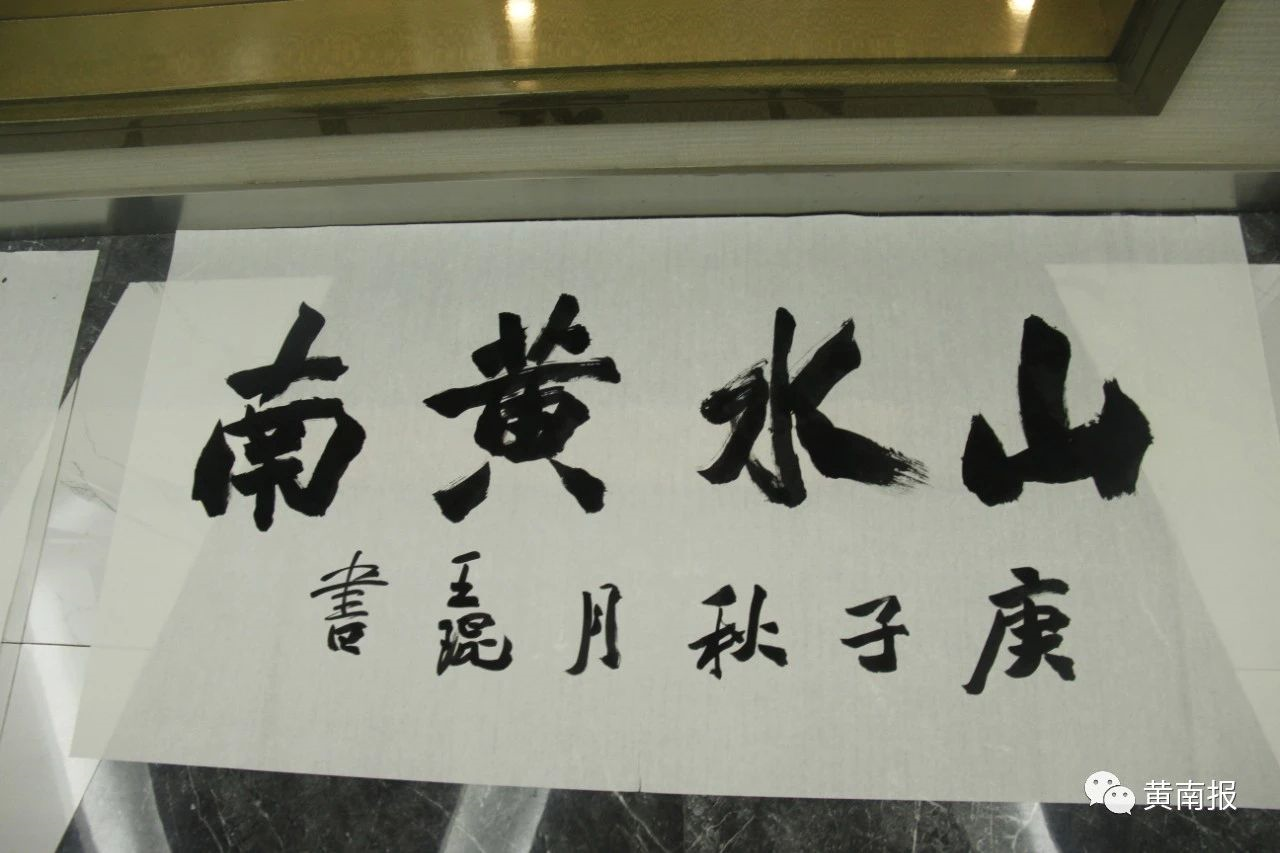 山水黄南
庚子秋月王琨書
黄南报